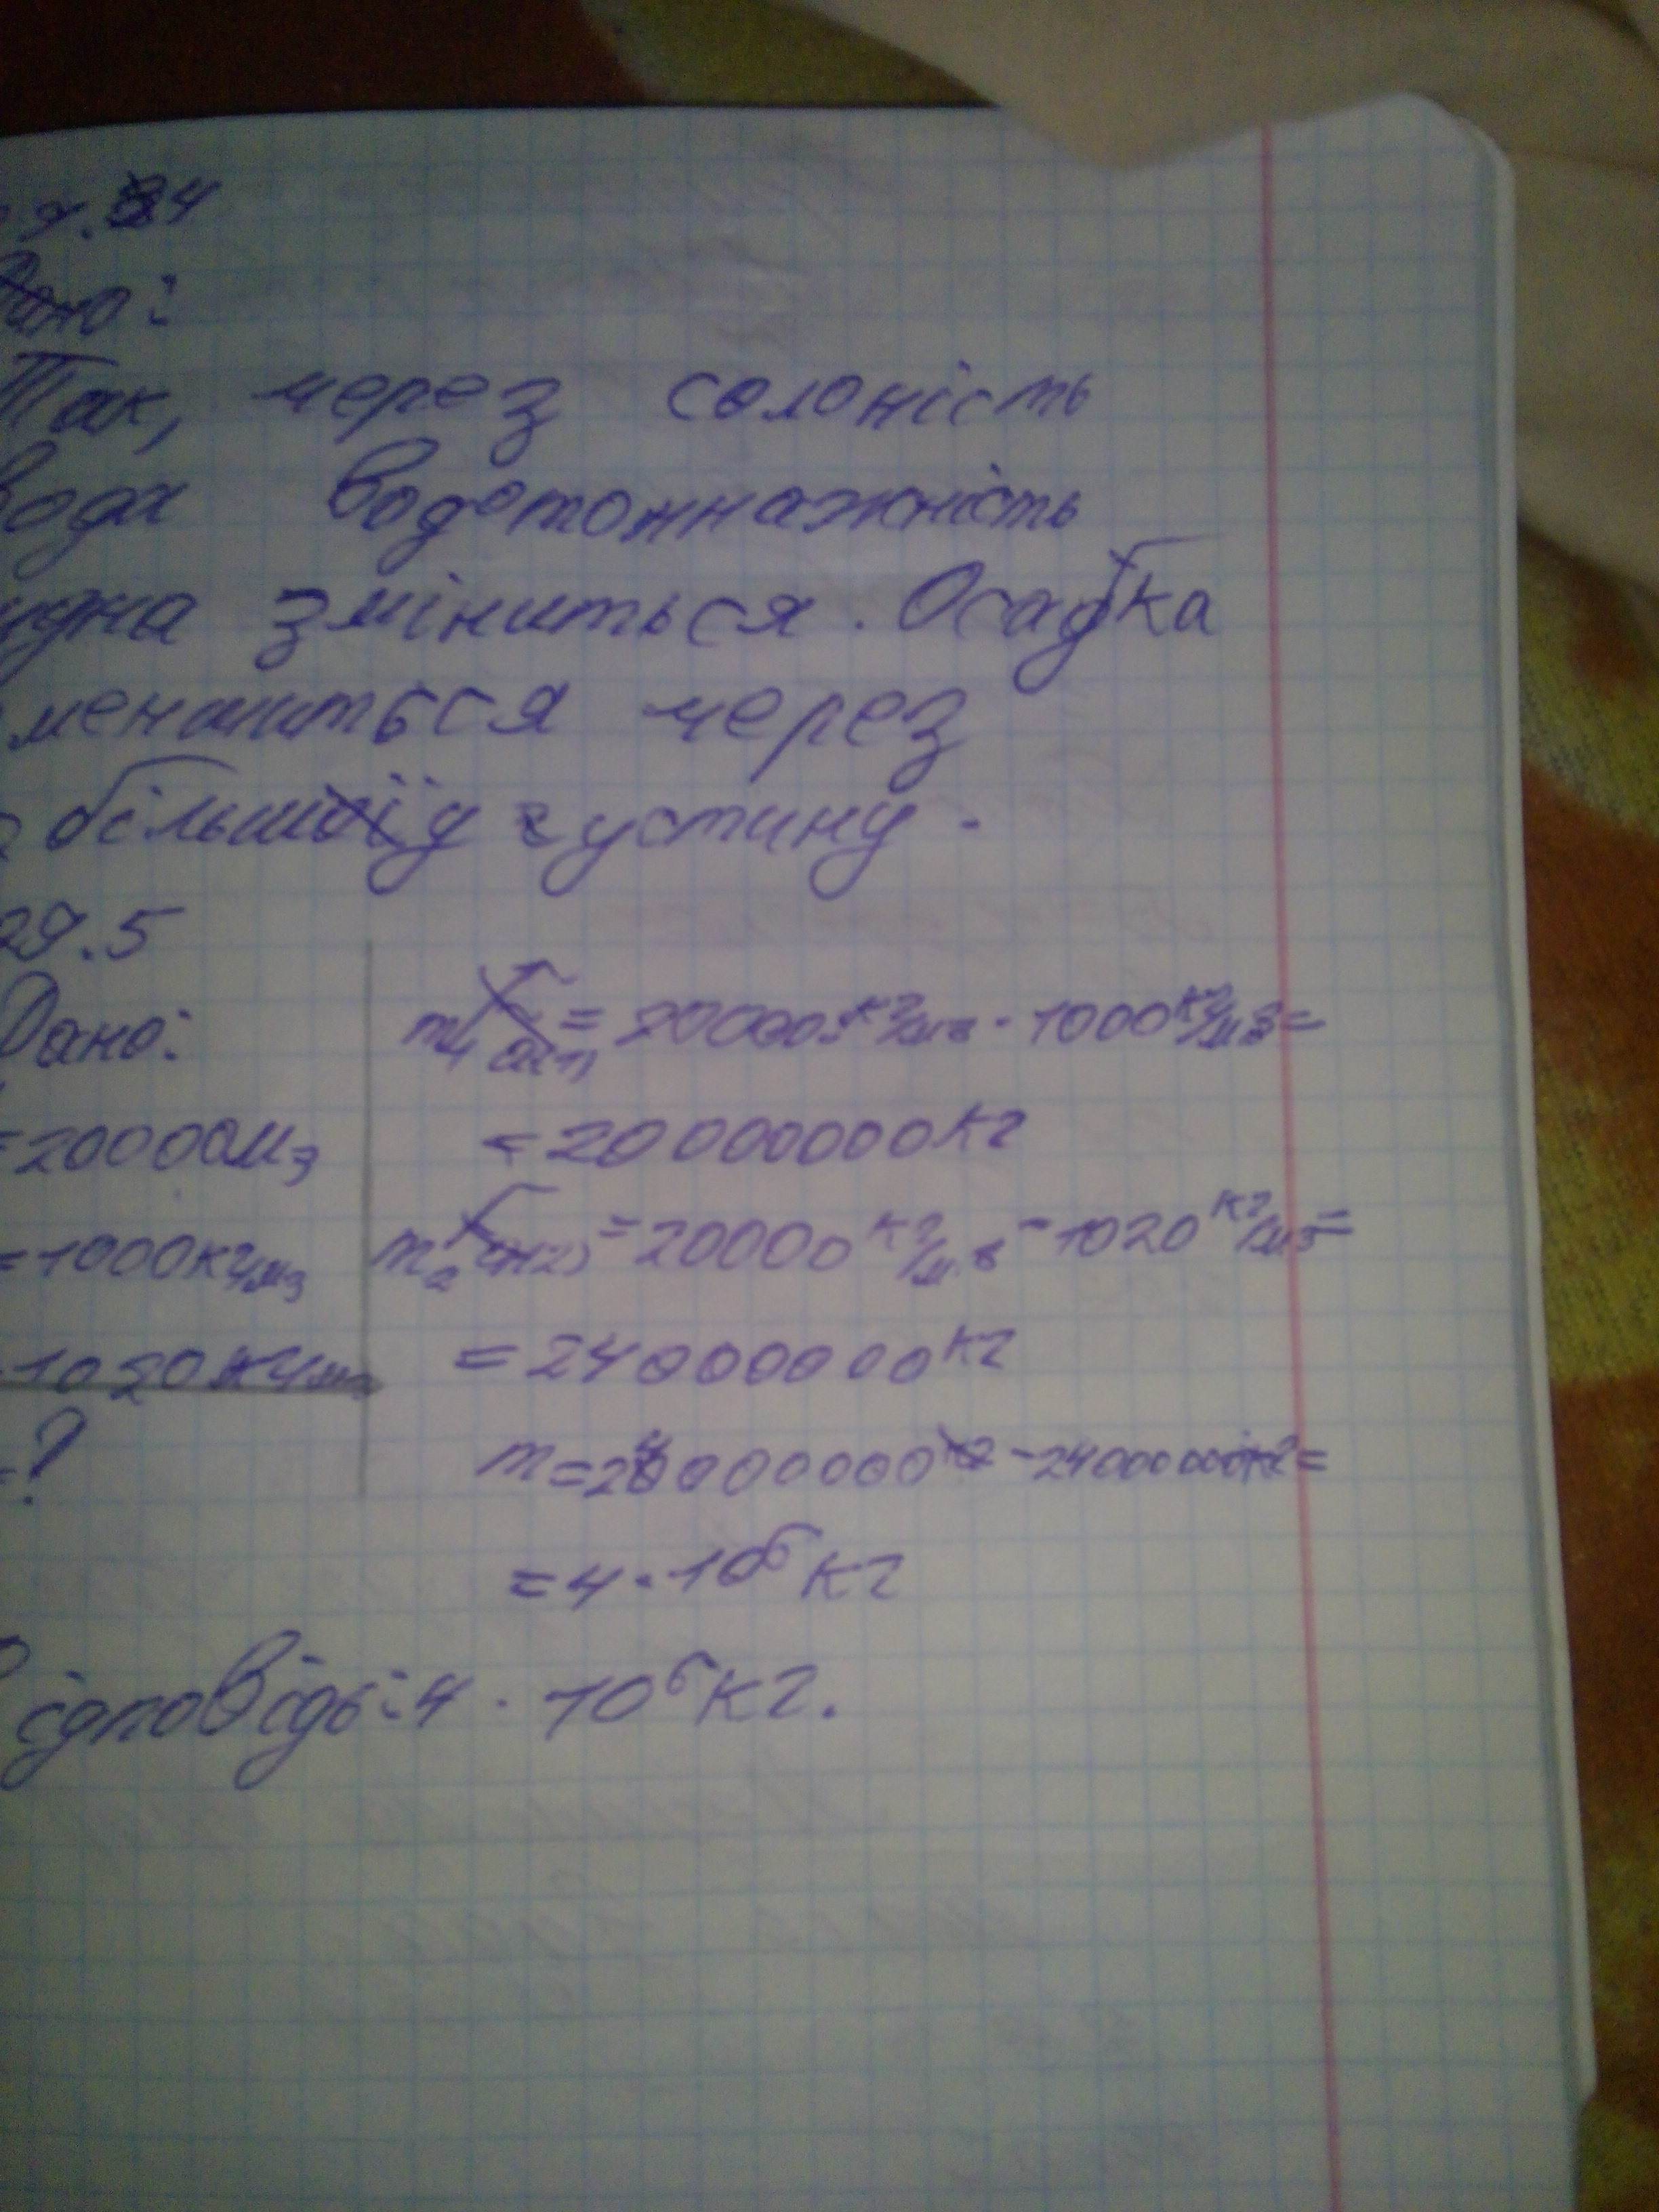 9.4
Дано:
Так, через солоність
води водотоннажність
судна зміниться. Осадка
зменшиться через
більшу густину.
29.5
Дано:
=20000м3
m1 = 20000кг/м3 · 1000кг/м3=
=20000000кг
=1000кг/м3
m2 =20000кг/м3 - 1020кг/м3=
1020кг/м3
=24000000кг
=?
m=24000000кг -24000000кг=
=4·10⁶кг
Відповідь: 4 · 10⁶кг.